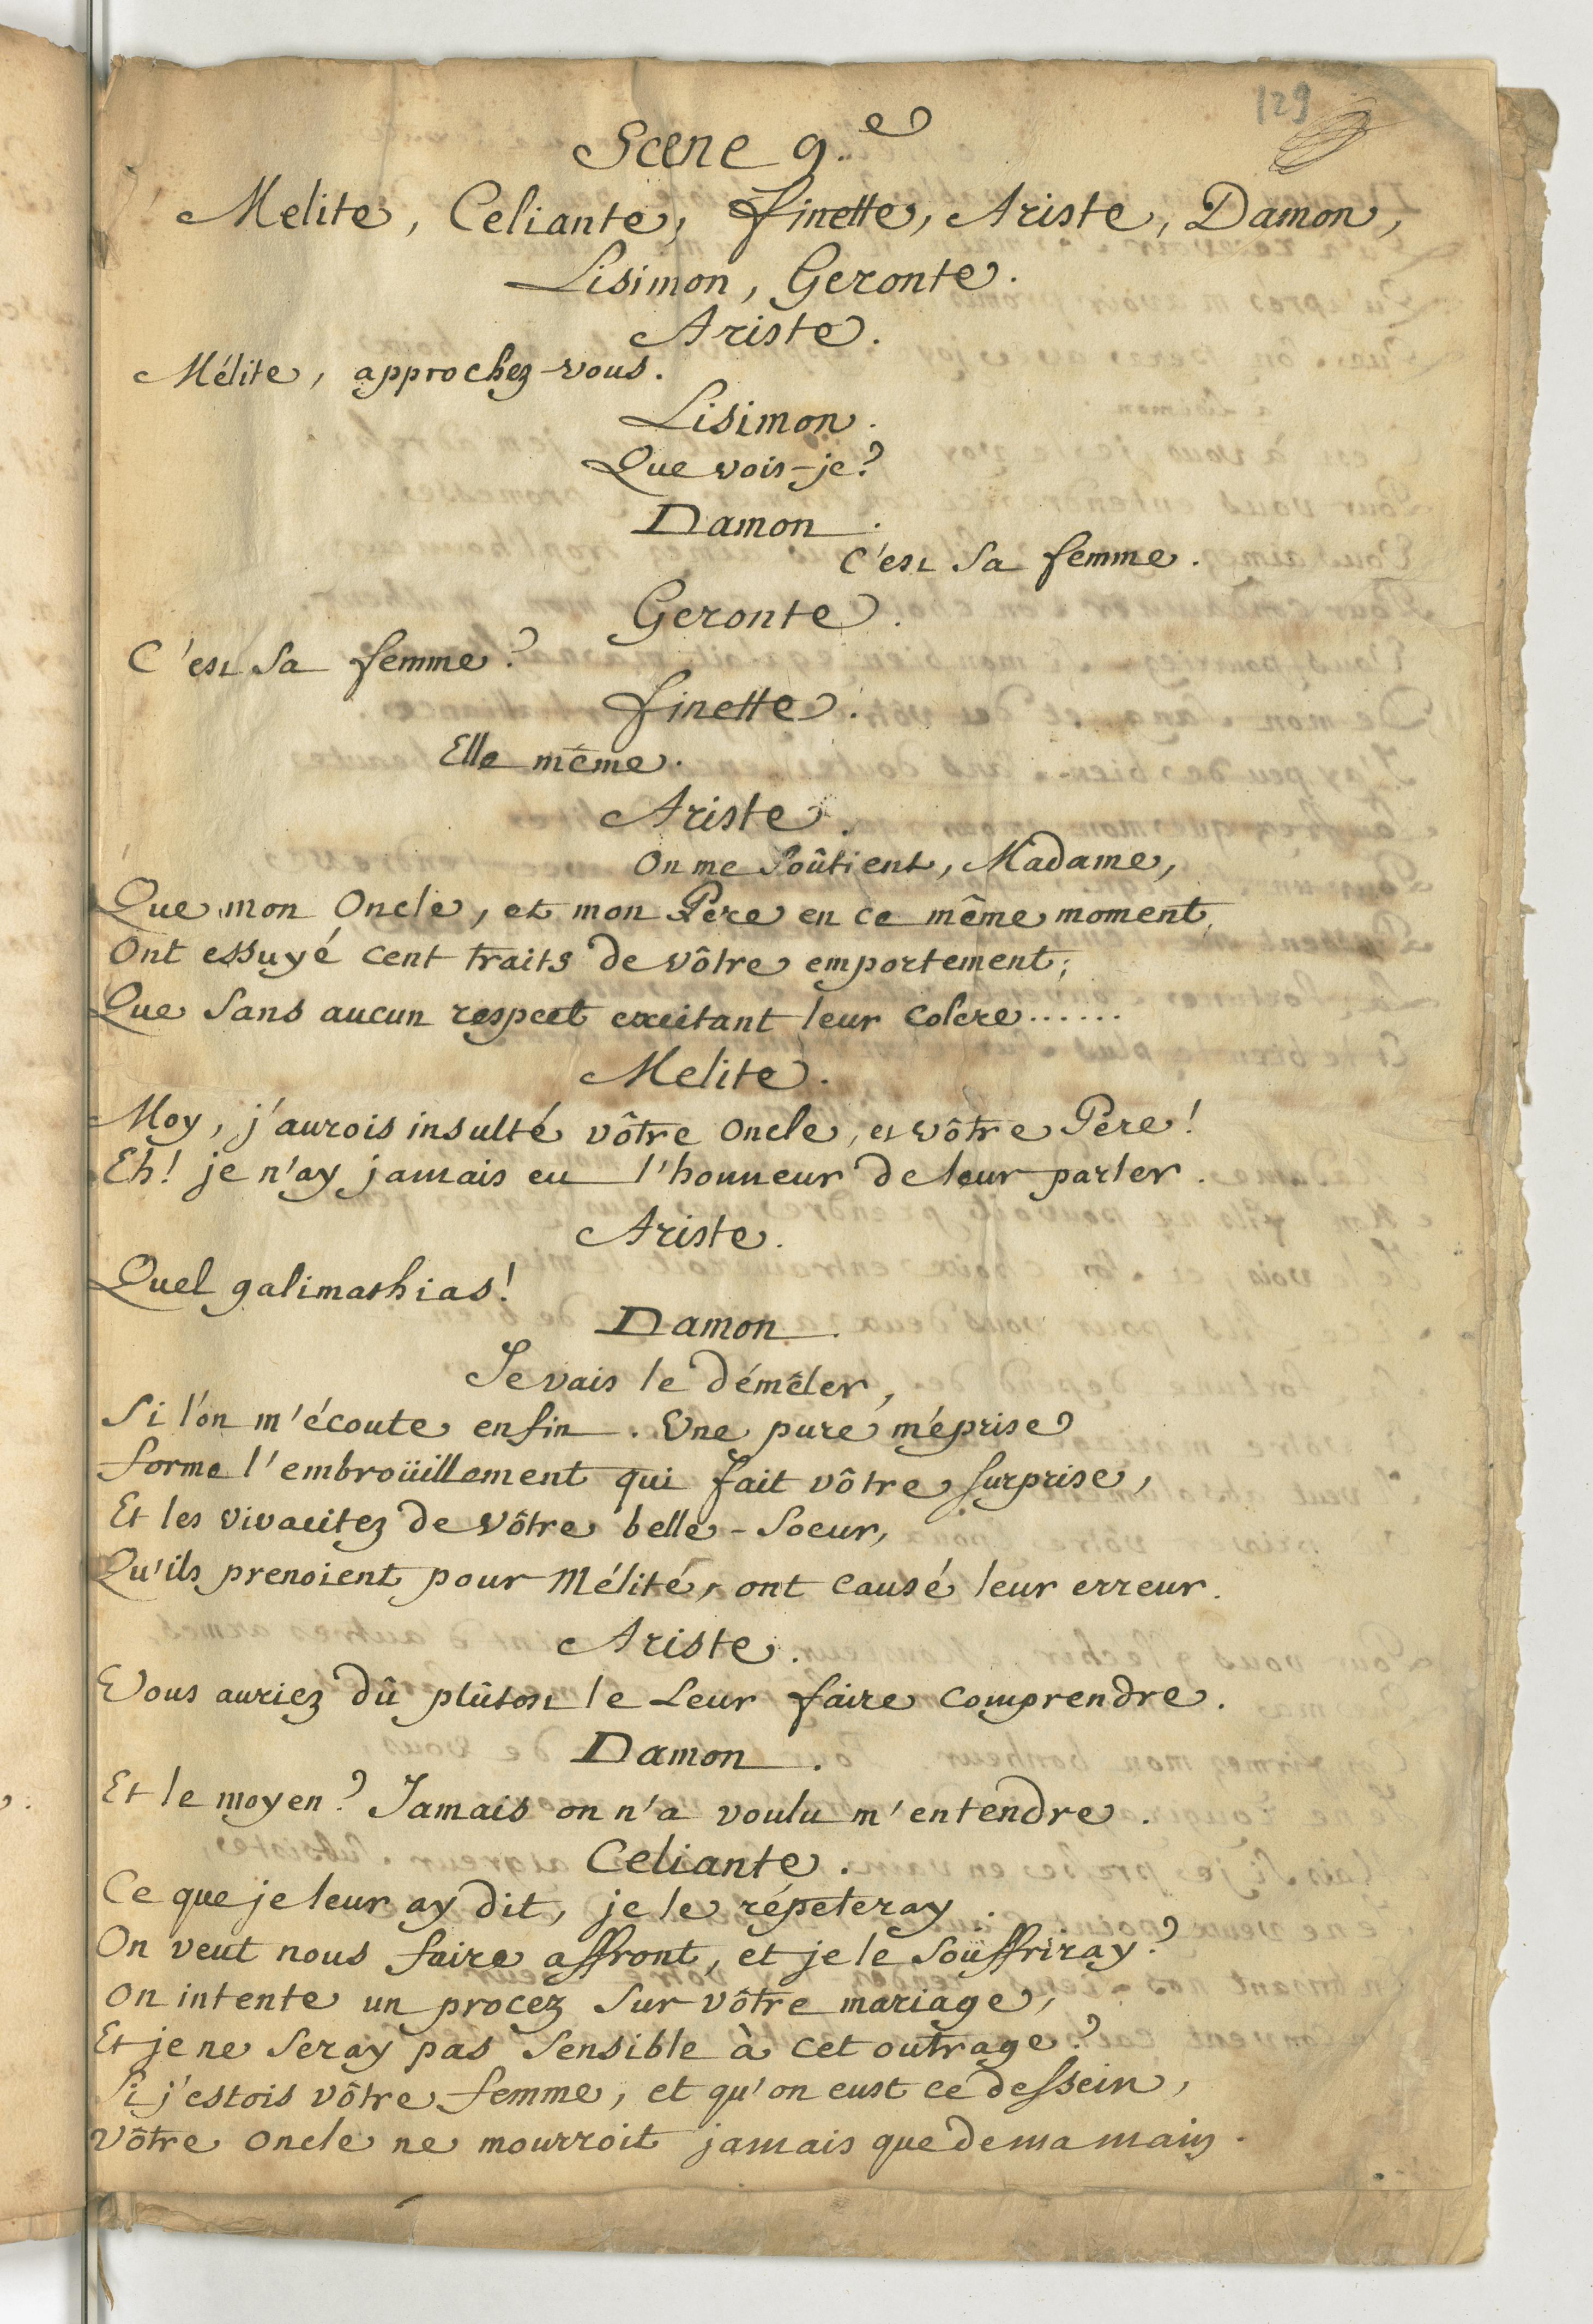 129
Scene 9.e
Melite, Celiante, Finette, Ariste, Damon,
Lisimon, Geronte.
Ariste.
Mélite, approchez-vous.
Lisimon.
Que vois-je?
Damon.
C'est sa femme.
Geronte.
C'est sa femme?
Finette.
Elle même.
Ariste.
On me soûtient, Madame,
Que mon Oncle, et mon Pere en ce même moment,
Ont essuyé cent traits de vôtre emportement;
Que sans aucun respect excitant leur colere......
Melite.
Moy, j'aurois insulté vôtre oncle, et vôtre Pere!
Eh! je n'ay jamais eu l'honneur de leur parler.
Ariste.
Quel galimathias!
Damon.
Je vais le démêler,
Si l'on m'écoute enfin. Une pure méprise
forme l'embroüillement qui fait vôtre surprise,
Et les vivacitez de vôtre belle-Soeur,
Qu'ils prenoient pour Mélite, ont causé leur erreur.
Ariste.
Vous auriez dû plûtost le leur faire comprendre.
Damon.
Et le moyen? Jamais on n'a voulu m'entendre.
Celiante.
Ce que je leur ay dit, je le répeteray.
On veut nous faire affront, et je le souffriray?
On intente un procez sur vôtre mariage,
Et je ne seray pas sensible à cet outrage?
Si j'estois vôtre femme, et qu'on eust ce dessein,
Vôtre oncle ne mourroit jamais que de ma main.